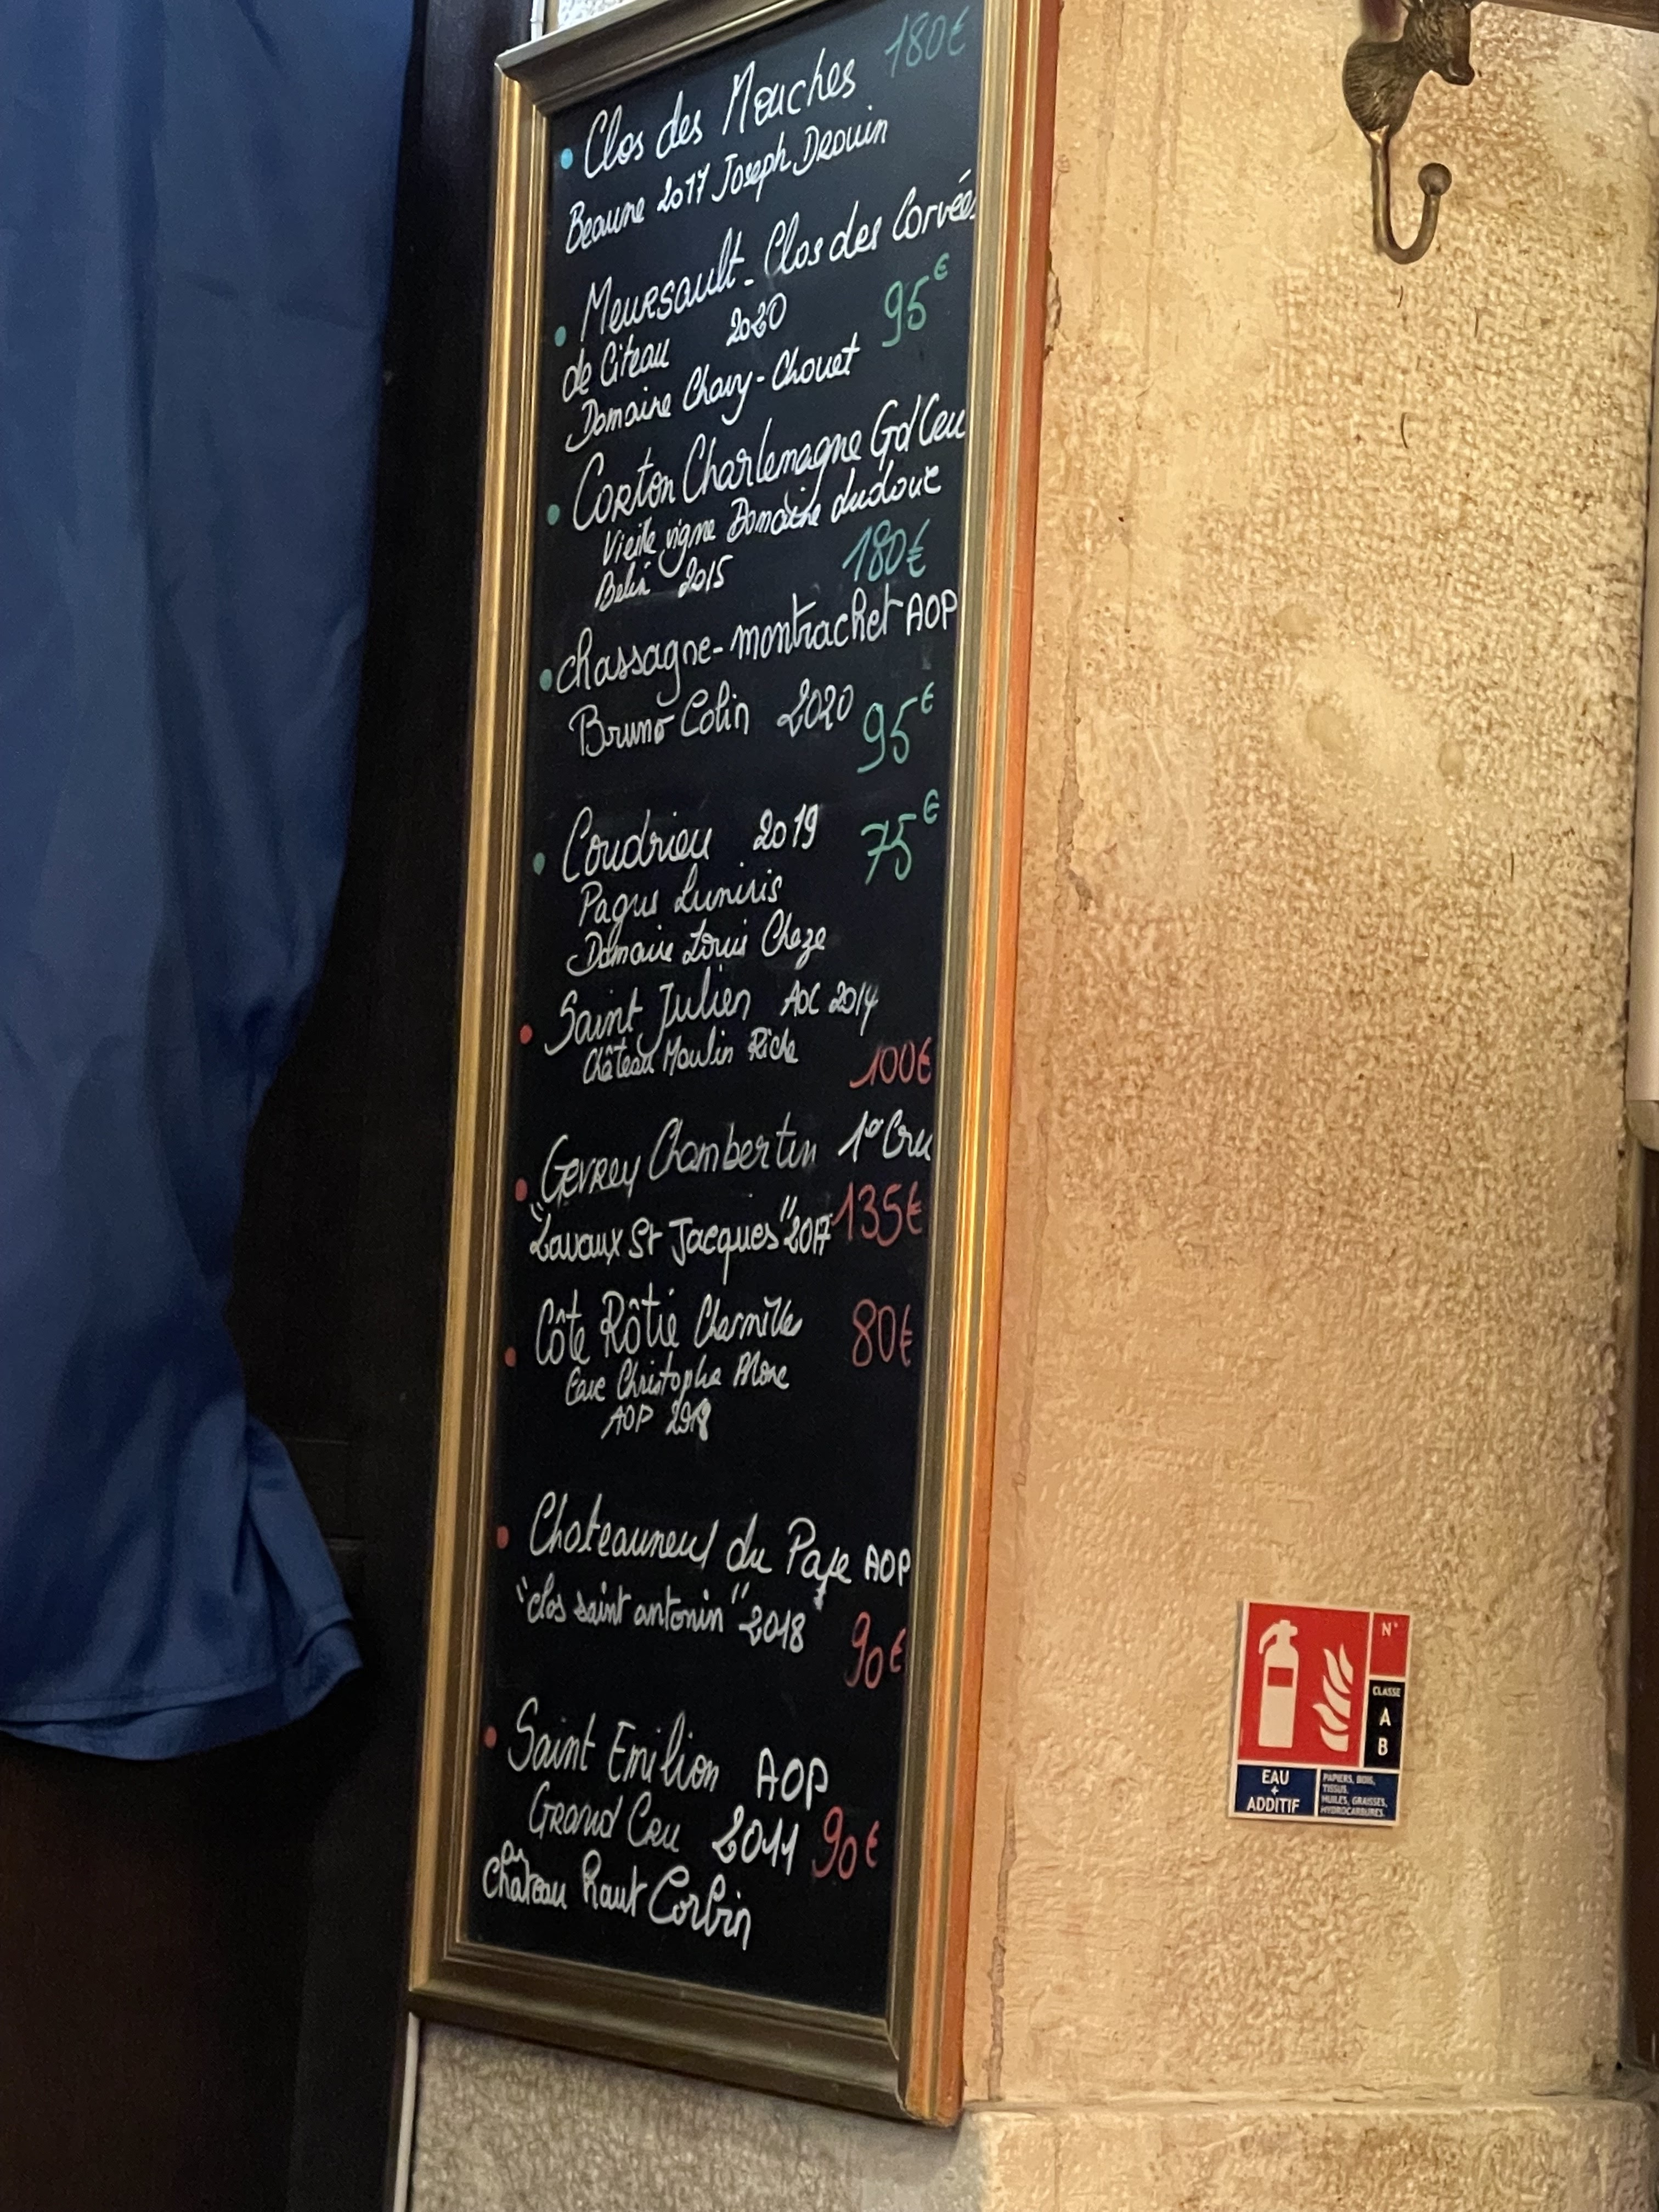 180€
• Clos des Mouches
Beaune 2017 Joseph Drouin
• Meursault - Clos des Corvées
de Citeau 2020 95€
Domaine Chavy-Chouet
• Corton Charlemagne Gd Cru
Vieille vigne Domaine Ludovic
Belin 2015 180€
• chassagne-montrachet AOP
Bruno Colin 2020 95€
• Condrieu 2019 75€
Pagus Luminis
Domaine Louis Cheze
• Saint Julien AOC 2014
Château Moulin Riche
100€
• Gevrey Chambertin 1er Cru
"Lavaux St Jacques" 2017 135€
• Côte Rôtie Charmilles 80€
Cave Christophe
AOP 2018
• Chateauneuf du Pape AOP
"clos saint antonin" 2018 90€
• Saint Emilion AOP
Grand Cru 2011 90€
Château Haut Corbin
N°
CLASSE
A
B
EAU
+
ADDITIF
PAPIERS, BOIS,
TISSUS,
HUILES, GRAISSES,
HYDROCARBURES.